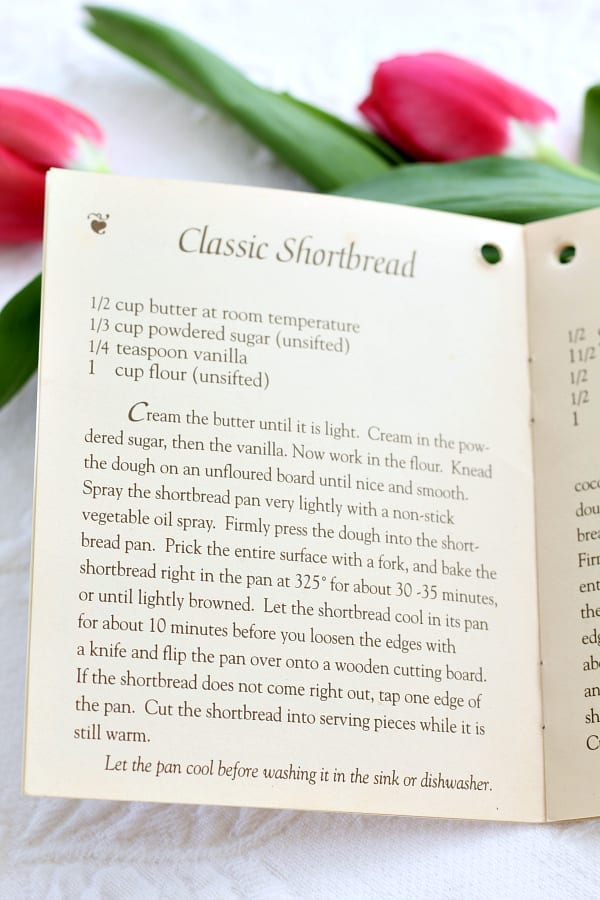 Classic Shortbread
1/2 cup butter at room temperature
1/3 cup powdered sugar (unsifted)
1/4 teaspoon vanilla
1 cup flour (unsifted)
Cream the butter until it is light. Cream in the pow-
dered sugar, then the vanilla. Now work in the flour. Knead
the dough on an unfloured board until nice and smooth.
Spray the shortbread pan very lightly with a non-stick
vegetable oil spray. Firmly press the dough into the short-
bread pan. Prick the entire surface with a fork, and bake the
shortbread right in the pan at 325° for about 30 -35 minutes,
or until lightly browned. Let the shortbread cool in its pan
for about 10 minutes before you loosen the edges with
a knife and flip the pan over onto a wooden cutting board.
If the shortbread does not come right out, tap one edge of
the pan. Cut the shortbread into serving pieces while it is
still warm.
Let the pan cool before washing it in the sink or dishwasher.
1/2
1 1/2
1/2
1/2
1